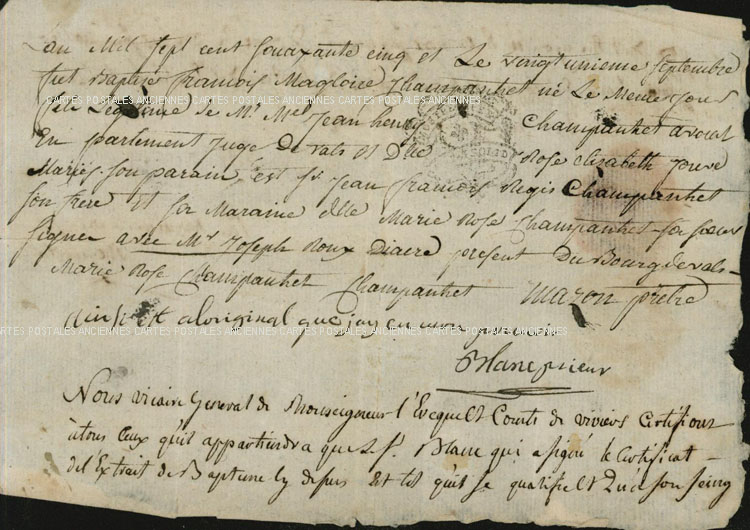 an Mil Sept cent Soixante cinq et Le vingt unieme Septembre
fut Baptisé francois Magloire Champanhet né Le Meme jour
fils Legitime de Mr. Me Jean henry Champanhet avocat
En parlement juge de vals et Dlle Rose elizabeth jouve
Mariés. Son parain est Sr. Jean francois Regis Champanhet
Son frere et Sa Maraine dlle Marie Rose Champanhet Sa Soeur
Signés avec Mr. Joseph Roux Diacre present Du Bourg de vals
Marie Rose Champanhet Champanhet Mazon prêtre
CARTES POSTALES ANCIENNES CARTES POSTALES ANCIENNES CARTES POSTALES ANCIENNES
ainsi est a loriginal que jay en mon pouvoir
Blanc prieur
Nous vicaire General de Monseigneur l'Evequelt Comte de viviers Certifions
àtous Ceux qu'il appartiendra que Le Sr. Blanc qui a signé le Certificat
del Extrait de Baptume cy dessus Est tel qu'il se qualifielt que son Seing